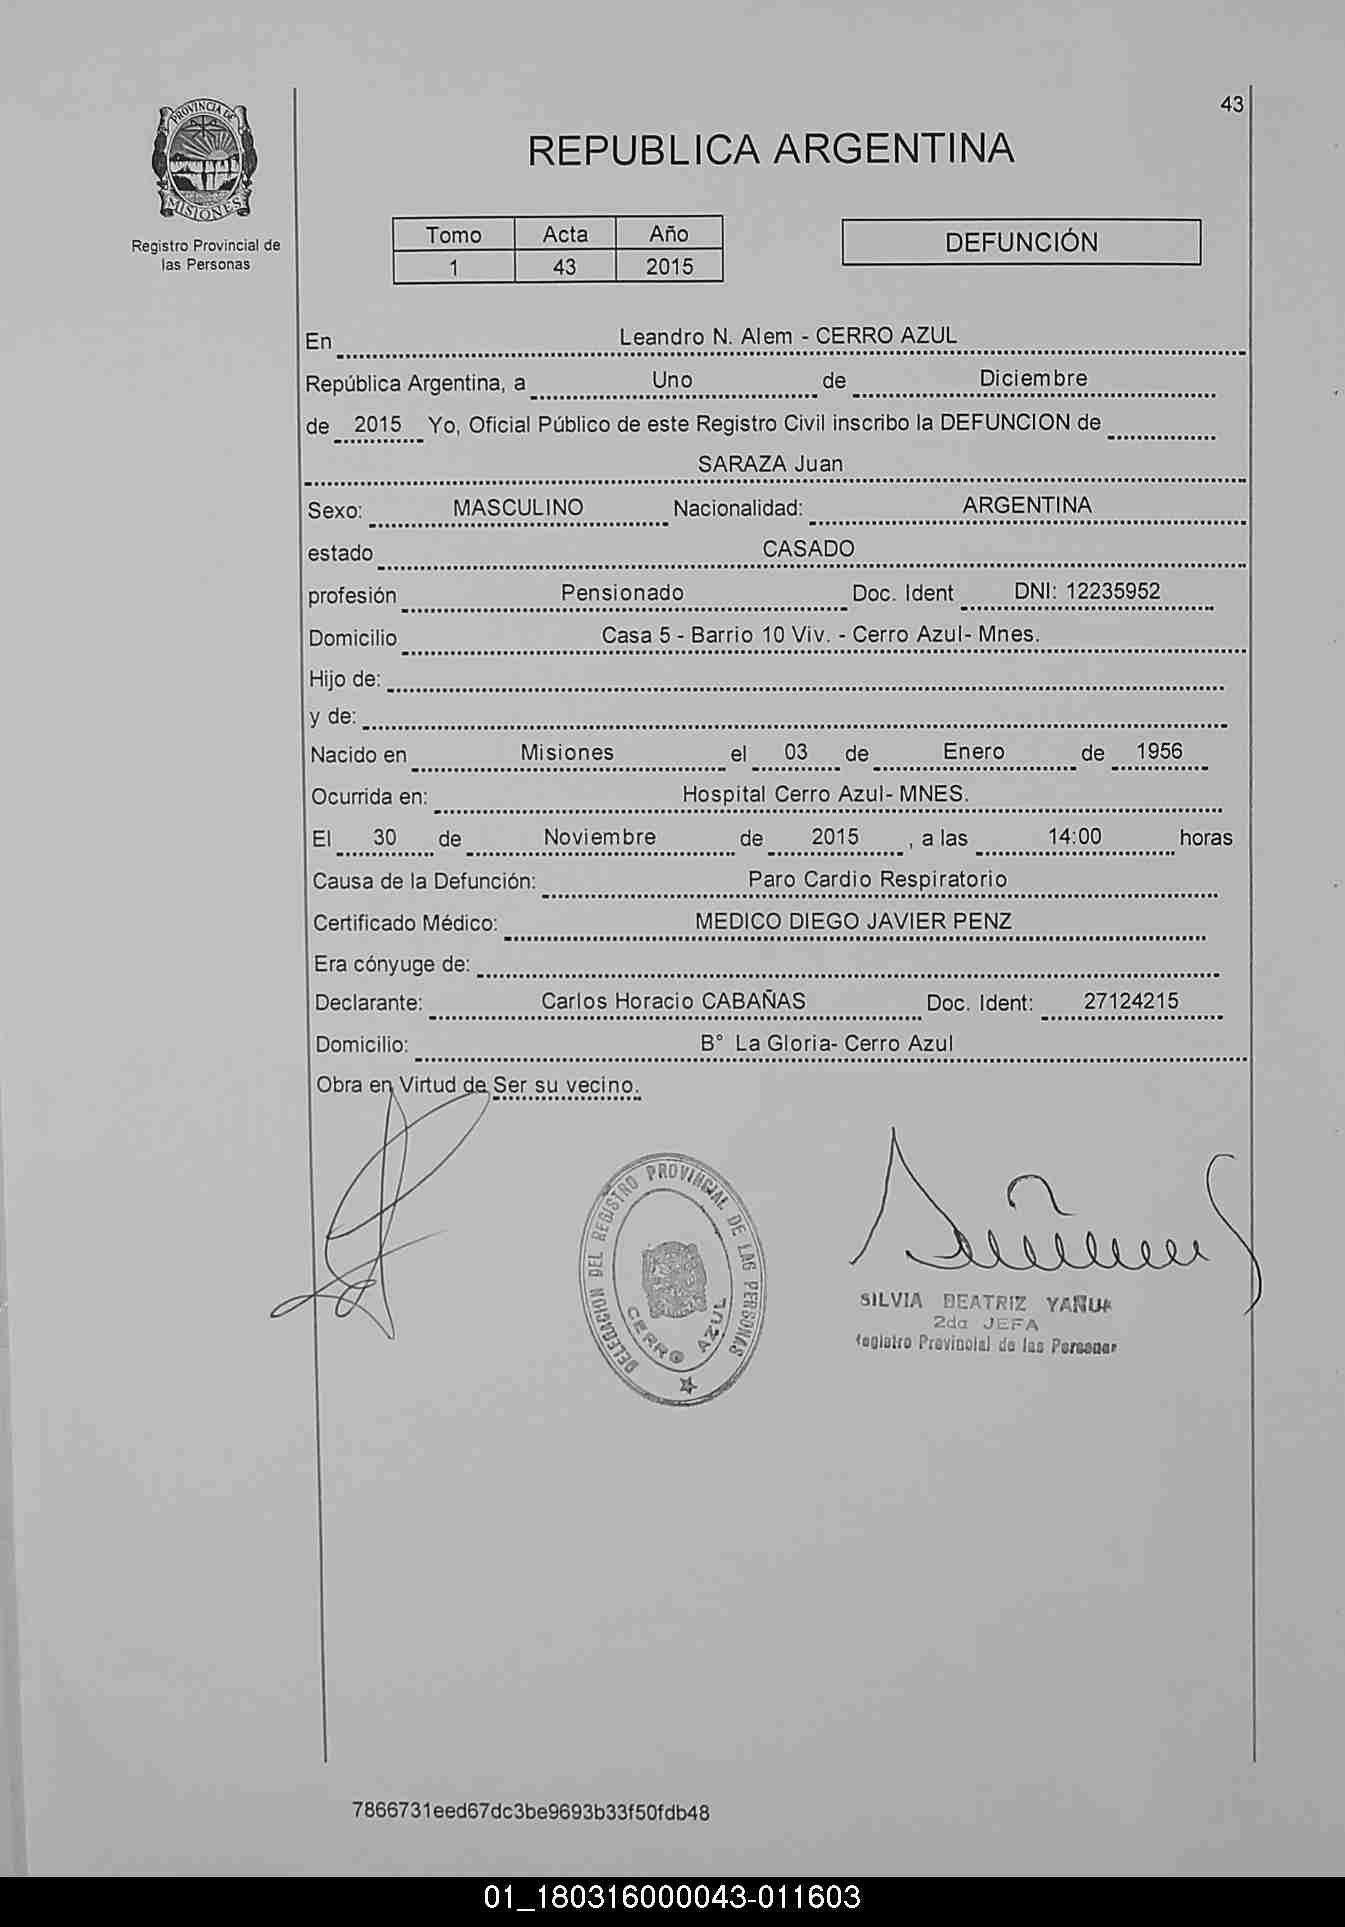 43
PROVINCIA DE
MISIONES
Registro Provincial de
las Personas
REPUBLICA ARGENTINA
Tomo Acta Año
1 43 2015
DEFUNCIÓN
En Leandro N. Alem - CERRO AZUL
República Argentina, a Uno de Diciembre
de 2015 Yo, Oficial Público de este Registro Civil inscribo la DEFUNCION de
SARAZA Juan
Sexo: MASCULINO Nacionalidad: ARGENTINA
estado CASADO
profesión Pensionado Doc. Ident DNI: 12235952
Domicilio Casa 5 - Barrio 10 Viv. - Cerro Azul- Mnes.
Hijo de:
y de:
Nacido en Misiones el 03 de Enero de 1956
Ocurrida en: Hospital Cerro Azul- MNES.
El 30 de Noviembre de 2015 , a las 14:00 horas
Causa de la Defunción: Paro Cardio Respiratorio
Certificado Médico: MEDICO DIEGO JAVIER PENZ
Era cónyuge de:
Declarante: Carlos Horacio CABAÑAS Doc. Ident: 27124215
Domicilio: B° La Gloria- Cerro Azul
Obra en Virtud de Ser su vecino.
DELEGACION DEL REGISTRO PROVINCIAL DE LAS PERSONAS
CERRO AZUL
SILVIA BEATRIZ
2da JEFA
Registro Provincial de las Personas
7866731eed67dc3be9693b33f50fdb48
01_180316000043-011603